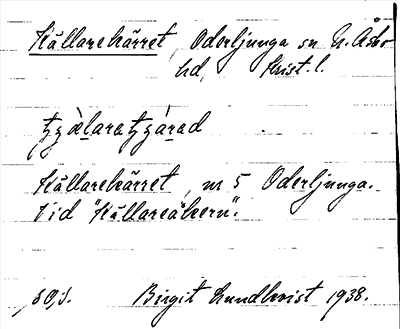 Källarekärret, Oderljunga sn N. Åsbo
hd, Krist. l.
Källarekärret, nr 5 Oderljunga.
Vid "Källareåkern".
Birgit Lundkvist 1938.